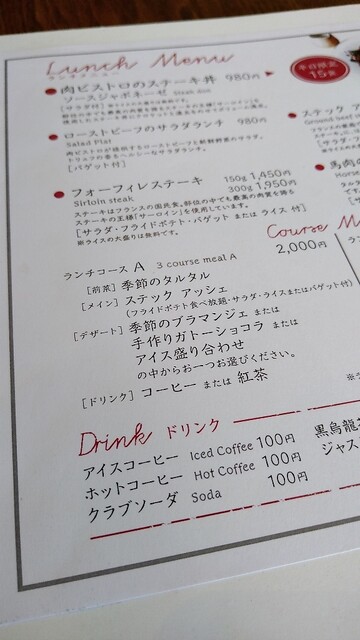 Lunch Menu
ランチメニュー
肉ビストロのステーキ丼 980円
ソースジャポネーゼ Steak don
平日限定
15食
ローストビーフのサラダランチ 980円
Salad Plat
肉ビストロが提供するローストビーフと新鮮野菜のサラダ。
トリュフの香るヘルシーなサラダランチ。
[バゲット付]
フォーフィレステーキ 150g 1,450円
Sirloin steak 300g 1,950円
ステーキはフランスの国民食。部位の中でも最高の肉質を誇る
ステーキの王様「サーロイン」を使用しています。
[サラダ・フライドポテト・バゲット または ライス 付]
※ライスの大盛りは無料です。
ステック
Ground beef
馬肉の
Horse
Course M
ランチコース A 3 course meal A 2,000円
[前菜] 季節のタルタル
[メイン] ステック アッシェ
(フライドポテト食べ放題・サラダ・ライスまたはバゲット付)
[デザート] 季節のブラマンジェ または
手作りガトーショコラ または
アイス盛り合わせ
の中からお一つお選びください。
[ドリンク] コーヒー または 紅茶
Drink ドリンク
アイスコーヒー Iced Coffee 100円
ホットコーヒー Hot Coffee 100円
クラブソーダ Soda 100円
黒烏龍
ジャス